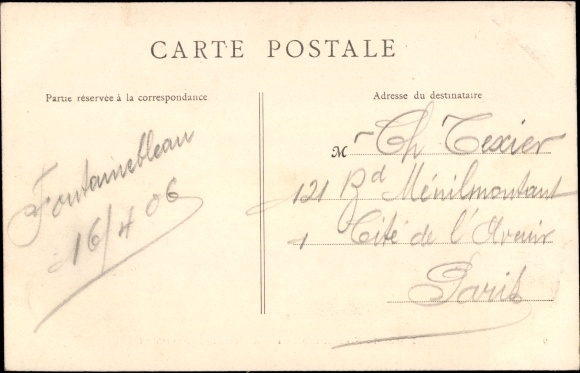 CARTE POSTALE
Partie réservée à la correspondance
Fontainebleau
16/4 06
Adresse du destinataire
Mr Ch Texier
121 Bd Ménilmontant
1 Cité de l'Avenir
Paris